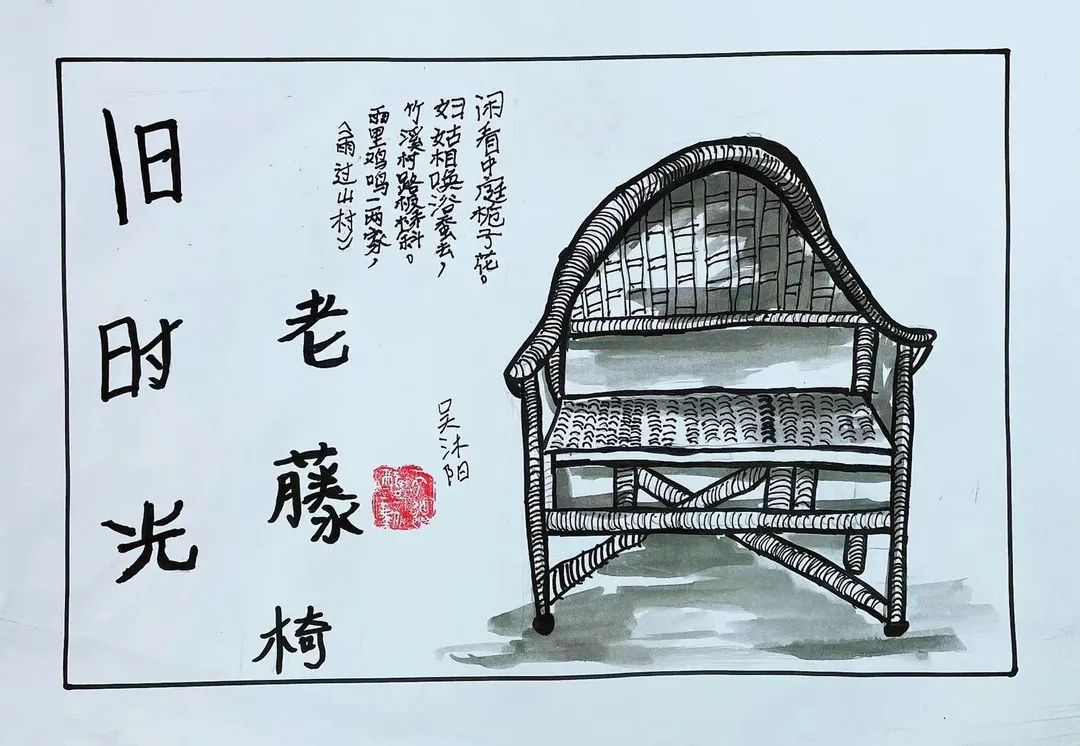 旧时光
老藤椅
《雨过山村》
雨里鸡鸣一两家，
竹溪村路板桥斜。
妇姑相唤浴蚕去，
闲看中庭栀子花。
吴沐阳